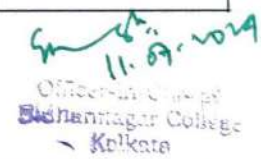 11.07.2024
Officer-in-Charge
Bidhannagar College
Kolkata